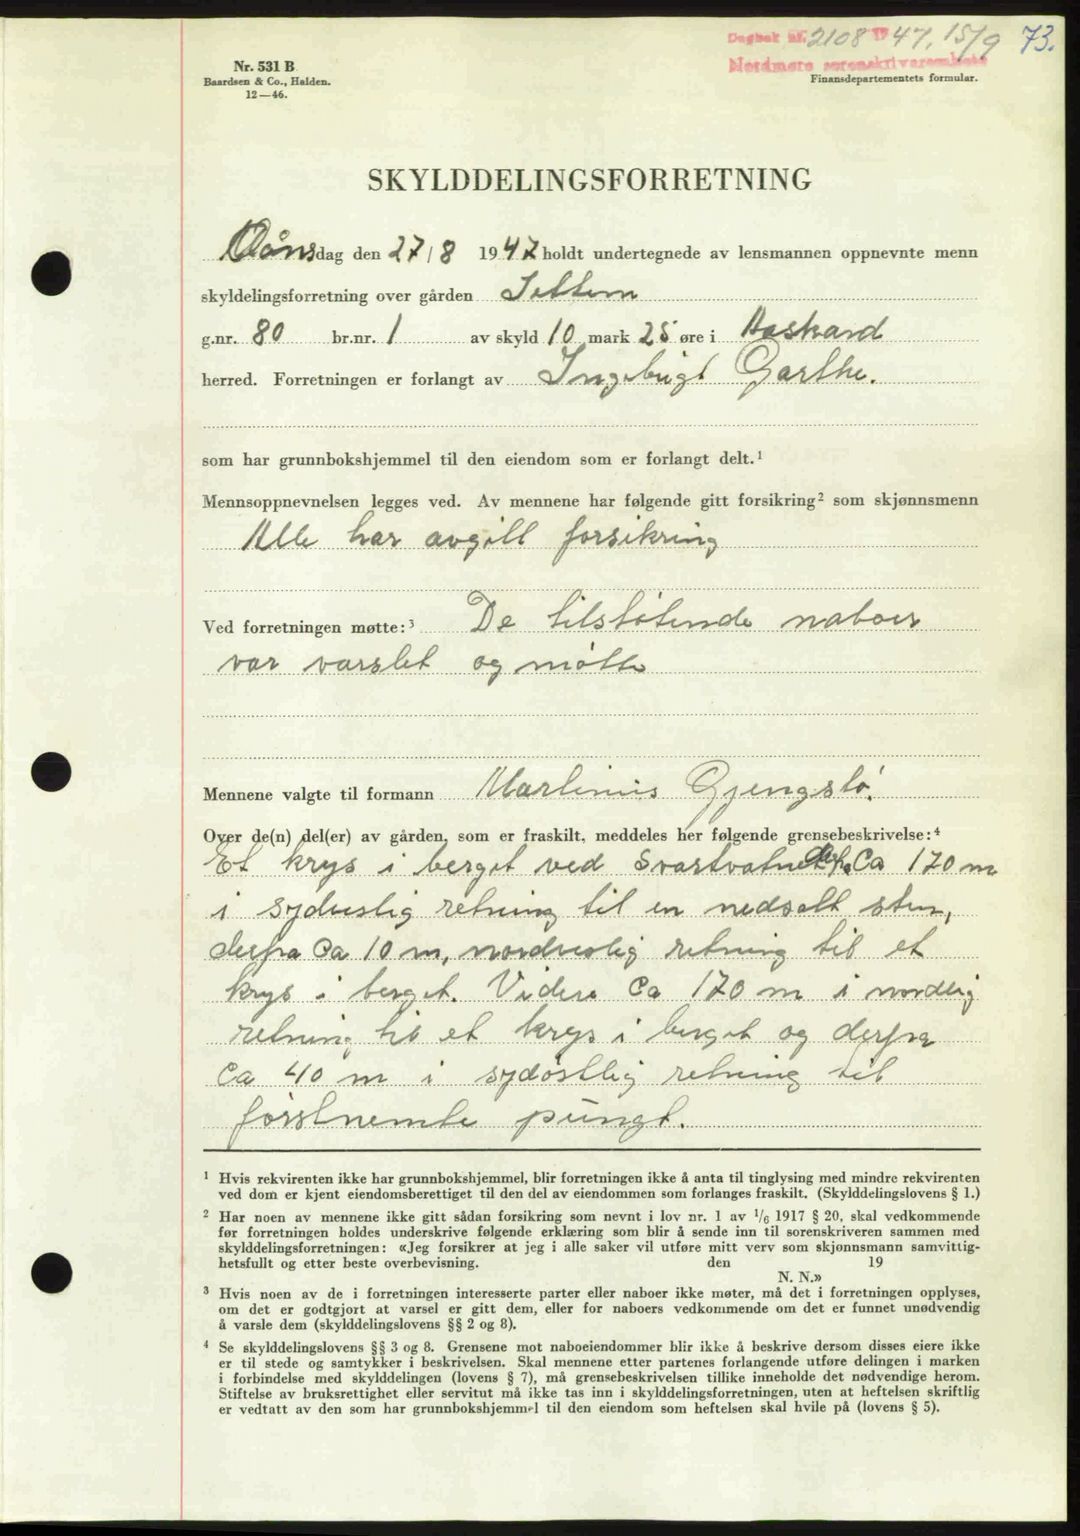 Dagbok nr. 2108 1947, 15/9 73.
Nordmøre sorenskriverembete
Nr. 531 B
Baardsen & Co., Halden.
12—46.
Finansdepartementets formular.
SKYLDDELINGSFORRETNING
Onsdag den 27/8 1947 holdt undertegnede av lensmannen oppnevnte menn
skyldelingsforretning over gården Settem
g.nr. 80 br.nr. 1 av skyld 10 mark 25 øre i Aaskard
herred. Forretningen er forlangt av Ingebrigt Garthe.
som har grunnbokshjemmel til den eiendom som er forlangt delt.¹
Mennsoppnevnelsen legges ved. Av mennene har følgende gitt forsikring² som skjønnsmenn
Alle har avgitt forsikring
Ved forretningen møtte:³ De tilstøtende naboer
var varslet og møtte
Mennene valgte til formann Martinus Gjengstø.
Over de(n) del(er) av gården, som er fraskilt, meddeles her følgende grensebeskrivelse:⁴
Et krys i berget ved Svartvatnet Ca 170 m
i sydveslig retning til en nedsatt sten,
derfra Ca 10 m, nordveslig retning til et
krys i berget. Videre Ca 170 m i nordlig
retning til et krys i berget og derfra
Ca 40 m i sydøstlig retning til
førstnemte pungt.
¹ Hvis rekvirenten ikke har grunnbokshjemmel, blir forretningen ikke å anta til tinglysing med mindre rekvirenten
ved dom er kjent eiendomsberettiget til den del av eiendommen som forlanges fraskilt. (Skylddelingslovens § 1.)
² Har noen av mennene ikke gitt sådan forsikring som nevnt i lov nr. 1 av 1/6 1917 § 20, skal vedkommende
før forretningen holdes underskrive følgende erklæring som blir å sende inn til sorenskriveren sammen med
skylddelingsforretningen: «Jeg forsikrer at jeg i alle saker vil utføre mitt verv som skjønnsmann samvittig-
hetsfullt og etter beste overbevisning. den 19
N. N.»
³ Hvis noen av de i forretningen interesserte parter eller naboer ikke møter, må det i forretningen opplyses,
om det er godtgjort at varsel er gitt dem, eller for naboers vedkommende om det er funnet unødvendig
å varsle dem (skylddelingslovens §§ 2 og 8).
⁴ Se skylddelingslovens §§ 3 og 8. Grensene mot naboeiendommer blir ikke å beskrive dersom disses eiere ikke
er til stede og samtykker i beskrivelsen. Skal mennene etter partenes forlangende utføre delingen i marken
i forbindelse med skylddelingen (lovens § 7), må grensebeskrivelsen tillike inneholde det nødvendige herom.
Stiftelse av bruksrettighet eller servitut må ikke tas inn i skylddelingsforretningen, uten at heftelsen skriftlig
er vedtatt av den som har grunnbokshjemmel til den eiendom som heftelsen skal hvile på (lovens § 5).